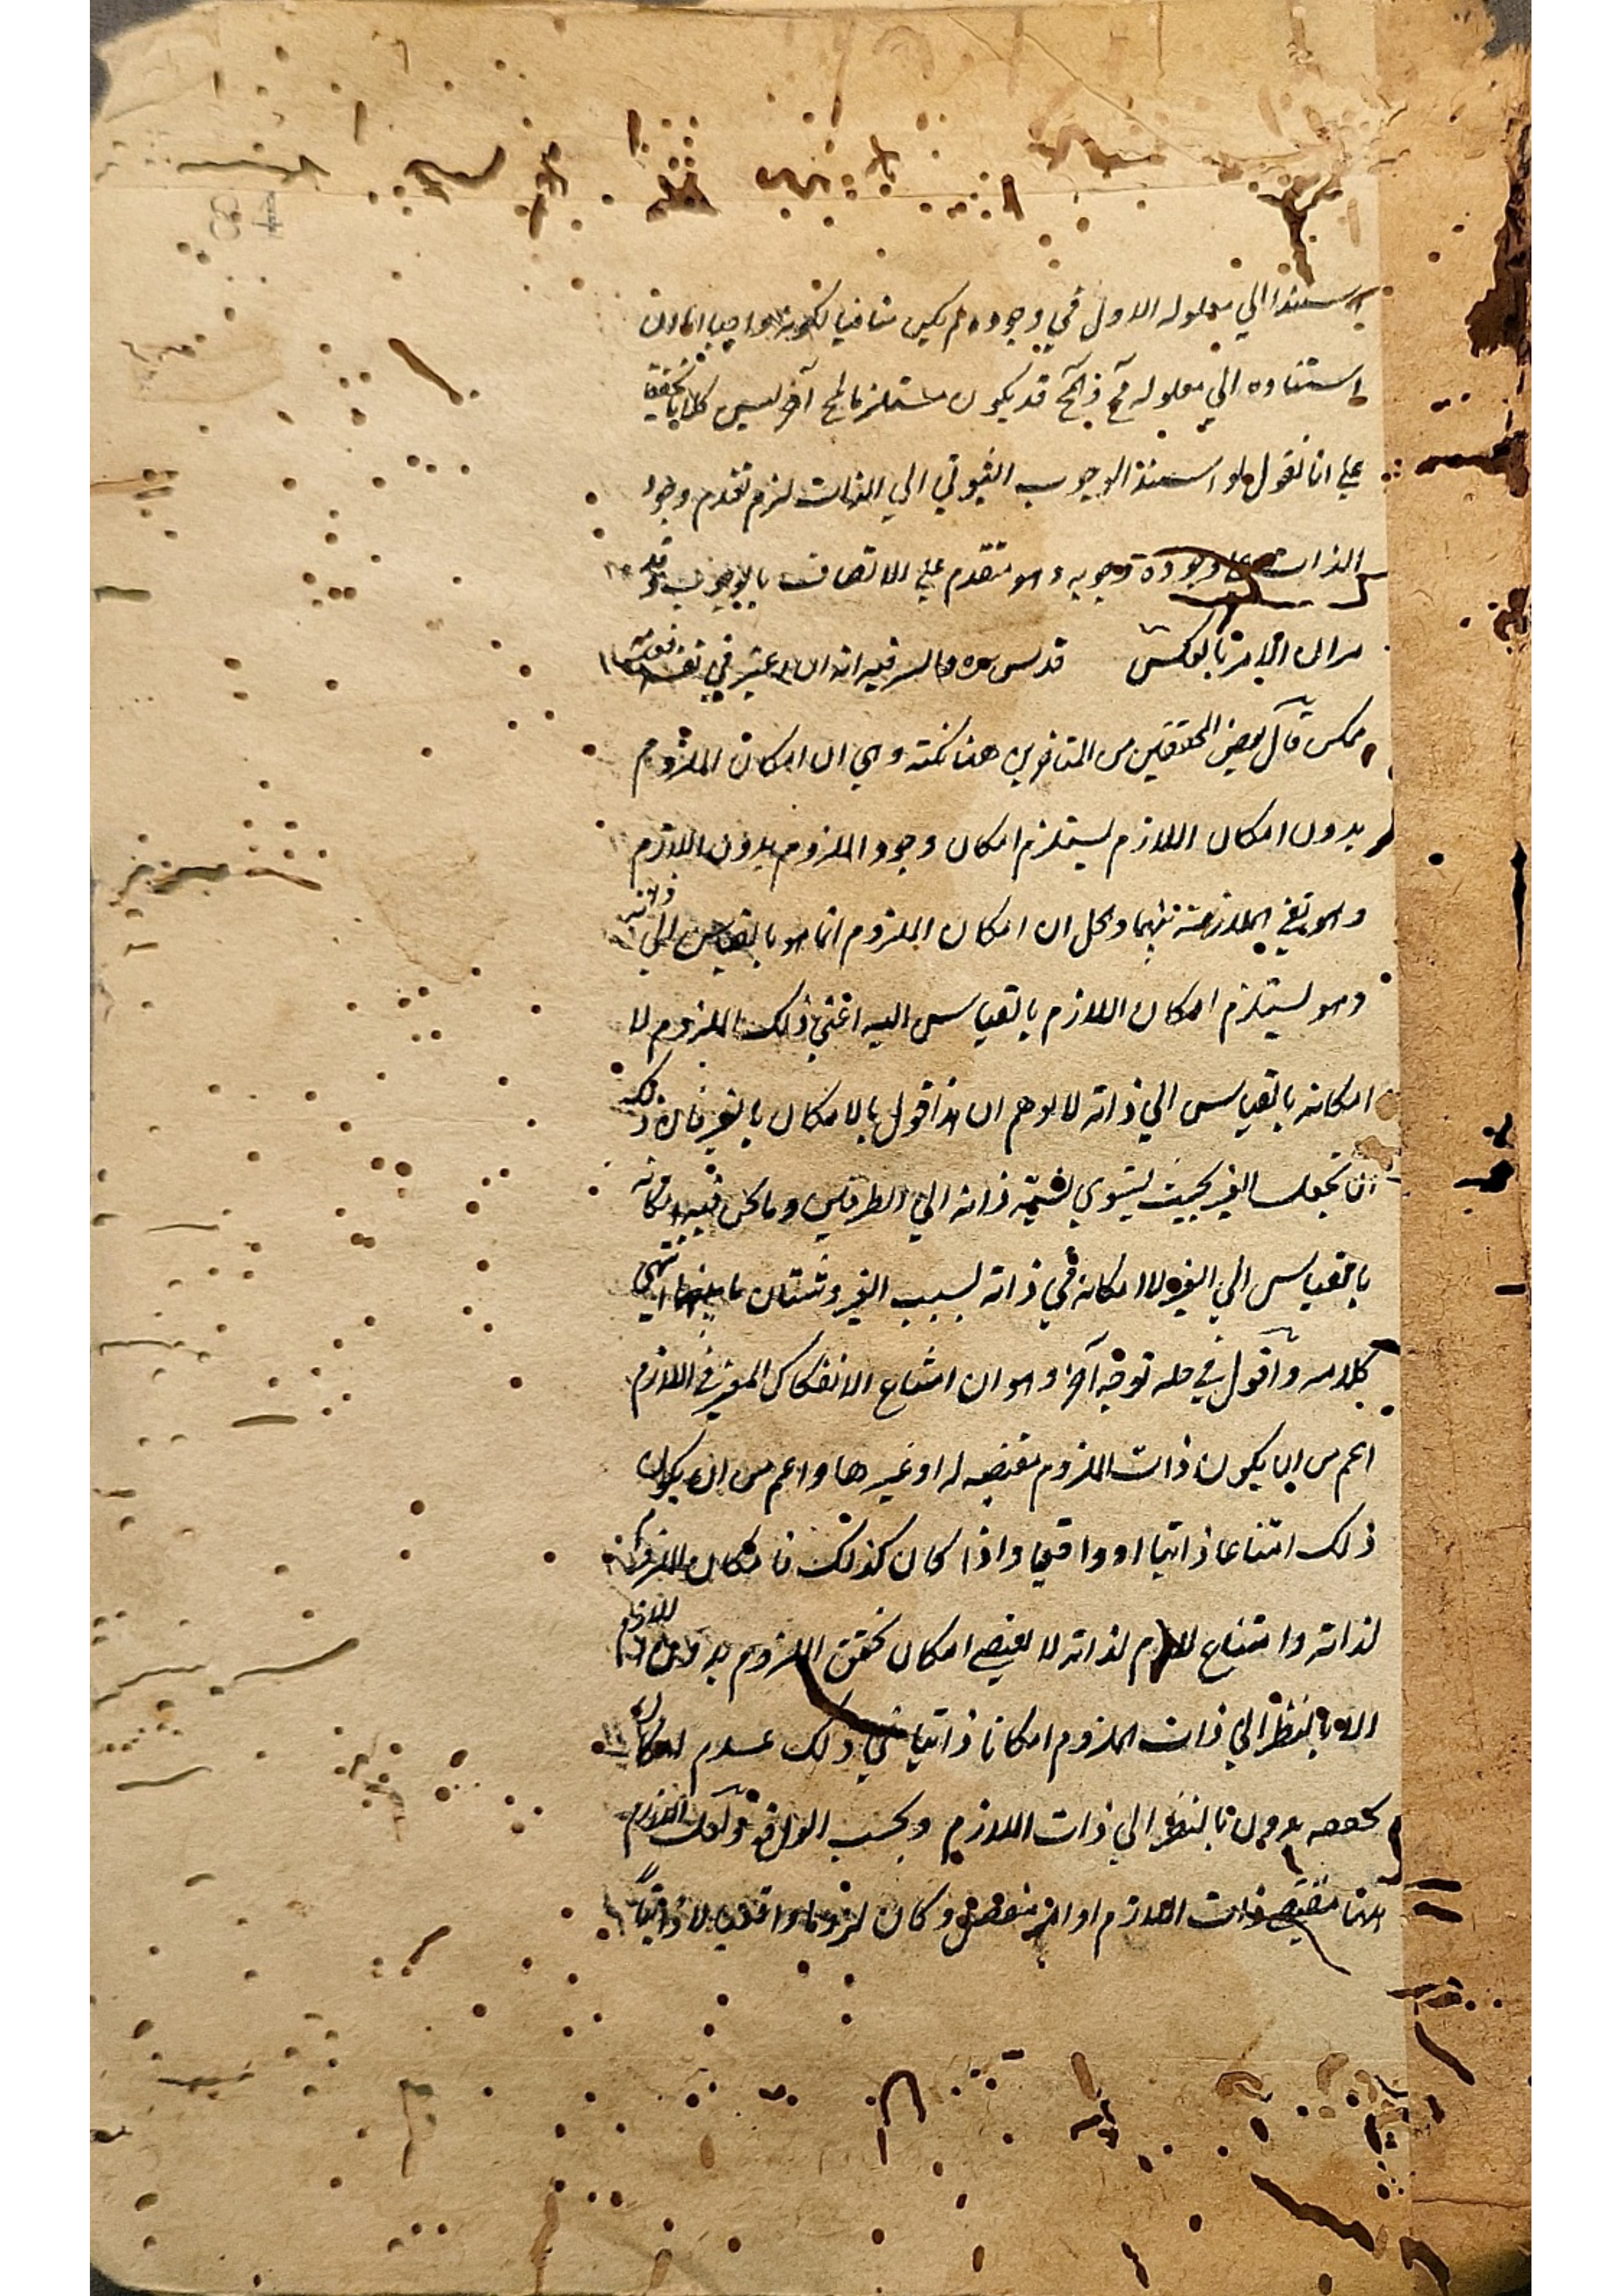 استند الي معلوله الاول في وجوده لم يكن منافيا لكونه واجبا اما ان
استناده الي معلوله مح فالمح قد يكون مستلزما لمح آخر ليس كلاما تحقيقيا
علي انا نقول لو استند الوجوب الثبوتي الي الذات لزم تقدم وجود
الذات علي وجوده وجوبه وهو متقدم علي الاتصاف بالوجوب وقد
مر ان الامر بالعكس قدس سره فيه انه ان اعتبر في نفسه
ممكن قال بعض المحققين من المتاخرين هنا نكتة وهي ان امكان الملزوم
بدون امكان اللازم يستلزم امكان وجود الملزوم بدون اللازم
وهو نفي الملازمة بينهما والحل ان امكان الملزوم انما هو بالقياس الي ذاته
وهو يستلزم امكان اللازم بالقياس اليه اعني ذلك الملزوم لا
امكانه بالقياس الي ذاته لا يوهم ان هذا قول بالامكان بالغير فان ذلك
ان يجعله الغير بحيث يستوي نسبة ذاته الي الطرفين وما نحن فيه امكانه
بالقياس الي الغير لا امكانه في ذاته بسبب الغير وشتان ما بينهما انتهي
كلامه واقول في حله توجه آخر وهو ان امتناع الانفكاك المعتبر في اللازم
اعم من ان يكون ذات الملزوم مقتضيه له او غيرها واعم من ان يكون
ذلك امتناعا ذاتيا او واقعيا واذا كان كذلك فامكان الملزوم
لذاته وامتناع اللازم لذاته لا يقتضي امكان تحقق الملزوم بدون اللازم
الا بالنظر الي ذات الملزوم امكانا ذاتيا ذلك عدم امكان
بدون بالنظر الي ذات اللازم وبحسب الواقع
ذات اللازم او امر منفصل وكان لزوما واقعيا لا ذاتياً